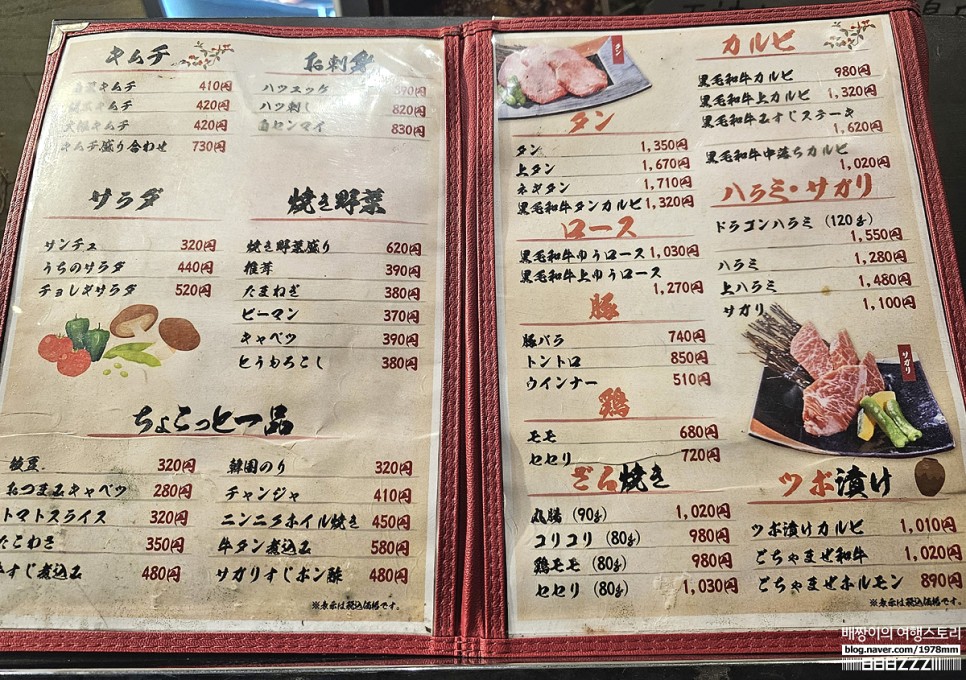 キムチ
白菜キムチ 410円
420円
大根キムチ 420円
キムチ盛り合わせ 730円
お刺身
ハツユッケ 890円
ハツ刺し 820円
白センマイ 830円
サラダ
サンチュ 320円
うちのサラダ 440円
チョレギサラダ 520円
焼き野菜
焼き野菜盛り 620円
椎茸 390円
たまねぎ 380円
ピーマン 370円
キャベツ 390円
とうもろこし 380円
ちょこっと一品
枝豆 320円
おつまみキャベツ 280円
トマトスライス 320円
たこわさ 350円
牛すじ煮込み 480円
韓国のり 320円
チャンジャ 410円
ニンニクホイル焼き 450円
牛タン煮込み 580円
サガリすじポン酢 480円
※表示は税込価格です。
タン
タン
タン 1,350円
上タン 1,670円
ネギタン 1,710円
黒毛和牛タンカルビ 1,320円
ロース
黒毛和牛ゆうロース 1,030円
黒毛和牛上ゆうロース
1,270円
豚
豚バラ 740円
トントロ 850円
ウインナー 510円
鶏
モモ 680円
セセリ 720円
ざら焼き
丸腸（90g） 1,020円
コリコリ（80g） 980円
鶏モモ（80g） 980円
セセリ（80g） 1,030円
カルビ
黒毛和牛カルビ 980円
黒毛和牛上カルビ 1,320円
黒毛和牛みすじステーキ
1,620円
黒毛和牛中落ちカルビ
1,020円
ハラミ・サガリ
ドラゴンハラミ（120g）
1,550円
ハラミ 1,280円
上ハラミ 1,480円
サガリ 1,100円
サガリ
ツボ漬け
ツボ漬けカルビ 1,010円
ごちゃまぜ和牛 1,020円
ごちゃまぜホルモン 890円
※表示は税込価格です。
배짱이의 여행스토리
blog.naver.com/1978mm
BBBZZZ